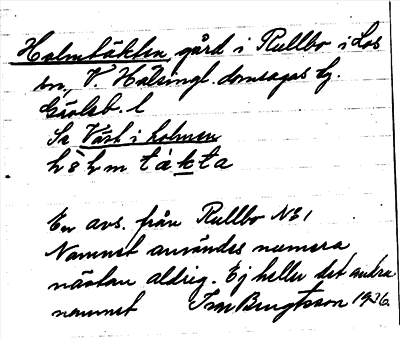 Holmtäkten, gård i Rullbo i Los
sn, V. Hälsingl. domsagas tg.
Gävleb. l
Se Väst i holmen
hòhmtàkta
En avs. från Rullbo NE1
Namnet användes numera
nästan aldrig. Ej heller det andra
namnet Bengtsson 1936.